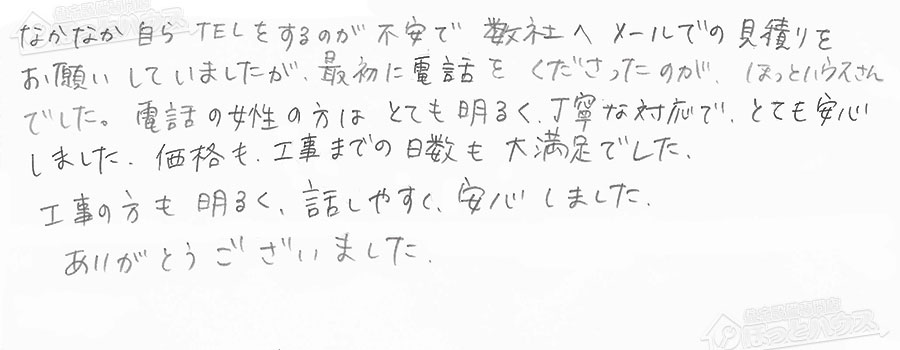 なかなか自らTELをするのが不安で数社へメールでの見積りを
お願いしていましたが、最初に電話をくださったのが、ほっとハウスさん
でした。電話の女性の方はとても明るく、丁寧な対応で、とても安心
しました。価格も、工事までの日数も大満足でした。
工事の方も明るく、話しやすく、安心しました。
ありがとうございました。
ほっとハウス